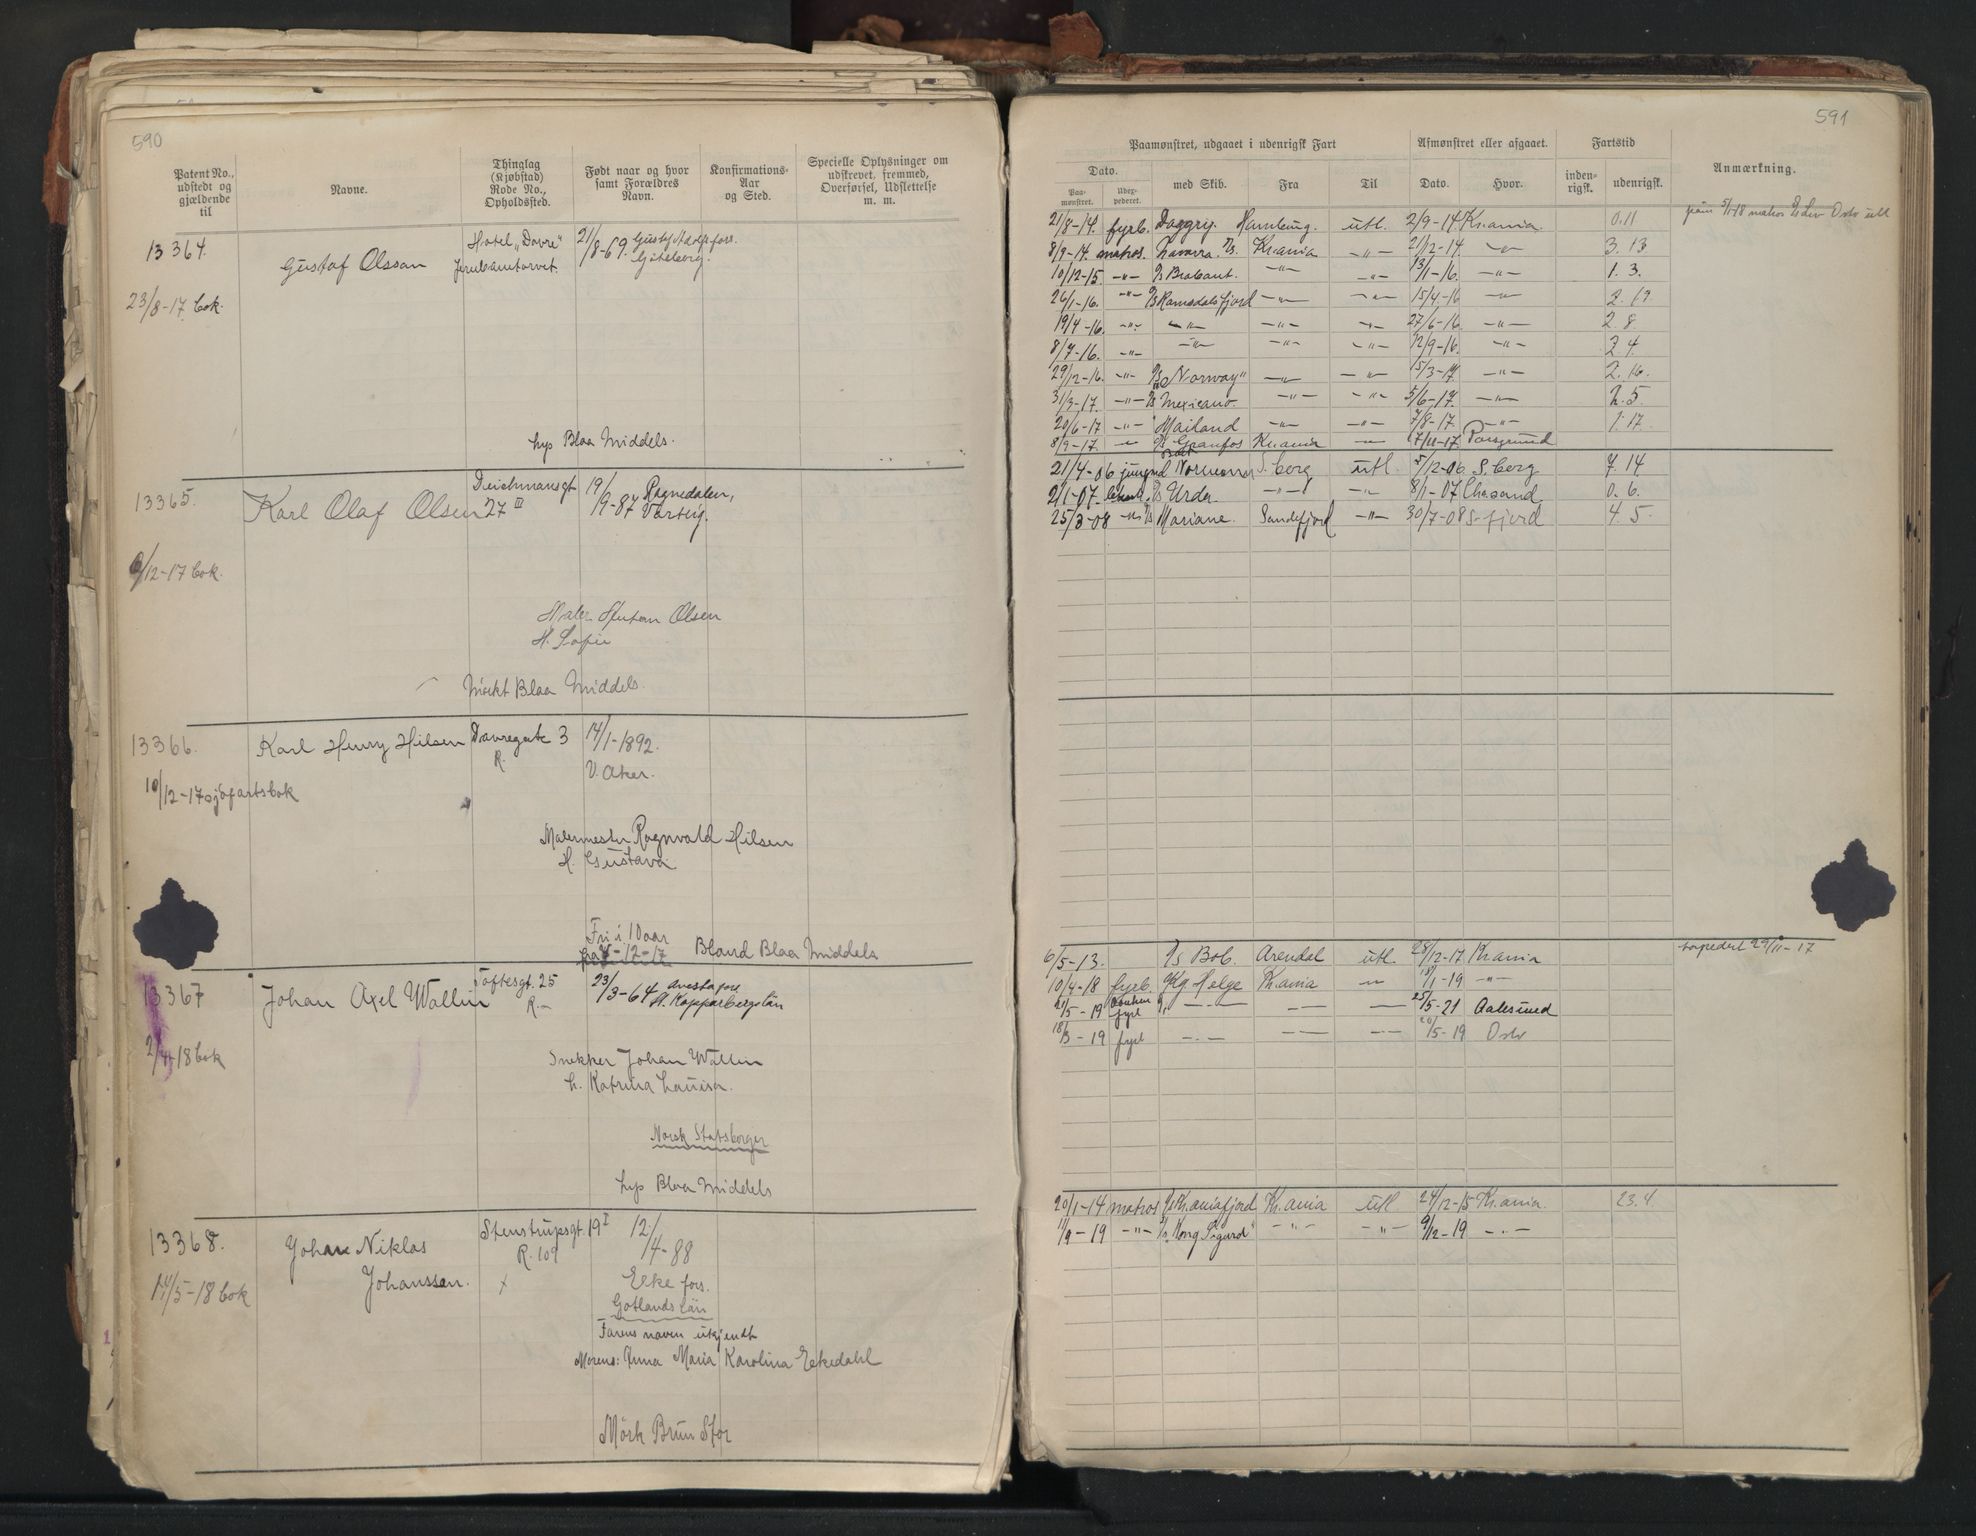 590
Patent No., udstedt og gjældende til
Navne.
Thinglag (Kjøbstad) Rode No., Opholdssted.
Født naar og hvor samt Forældres Navn.
Konfirmations-Aar og Sted.
Specielle Oplysninger om udskrevet, fremmed, Overførsel, Udslettelse m. m.
13364.
Gustaf Olsson
Hotel „Dovre"
Jernbanetorvet.
21/8-69. Gustf Adolfs fors.
Göteborg.
23/8-17 bok.
lys Blaa Middels.
13365.
Karl Olaf Olsen
Deichmansgt
27 III
19/9-87 Rognedalen,
Varteig.
6/12-17 bok.
Maler Olsen
H. Sofie
Mørkt Blaa Middels.
13366.
Karl Henry Hilsen
Dovregate 3
R.
14/1-1892.
V. Aker.
10/12-17 sjøfartsbok
Malermester Ragnvald Hilsen
H. Gustava
Fri i 10 aar
fra -12-17
Blond Blaa Middels
13367
Johan Axel Wallin
Toftesgt. 25
R.-
23/3-64 Avesta fors
St. Kopparbergslän
2/4-18 bok
Snekker Johan Wallin
h. Katrina Louisa.
Norsk Statsborger
lys Blaa Middels
13368.
Johan Niklas
Johanssen.
Stenstrupsgt. 19 I
R. 109
x
12/4-88
Eke fors.
Gotlands län
14/5-18 bok
Farens naven ukjendt
Morens: Anna Maria Karolina Ekedahl
Mörk Brun Stor
591
Paamønstret, udgaaet i udenrigsk Fart
Afmønstret eller afgaaet.
Fartstid
Anmærkning.
Dato.
Paa-mønstret.
Udex-pederet.
med Skib.
Fra
Til
Dato.
Hvor.
inden-rigsk.
udenrigsk.
21/8-14. fyrb. Daggry. Hamburg. utl. 2/9-14 Kr.ania. 0.11
5/1-18 matros D/S Leo Oslo utl
8/9-14. matros. Navarra D/s. Kr.ania -"- 21/12-14. -"- 3. 13
10/12-15. -"- D/s Brabant. -"- -"- 13/1-16. -"- 1. 3.
26/1-16. -"- D/s Ramsdalsfjord -"- -"- 15/4-16 -"- 2. 19
19/4-16. -"- -"- -"- -"- 27/6-16. -"- 2. 8
8/7-16. -"- -"- -"- -"- 12/9-16. -"- 2. 4.
29/12-16. -"- D/s „Norway" -"- -"- 15/3-17 -"- 2. 16.
31/3-17. -"- D/s Mexicano. -"- -"- 5/6-17. -"- 2. 5.
20/6-17 -"- Mailand -"- -"- 7/8-17 -"- 1. 17.
8/9-17. -"- D/s Granfos Kr.ania -"- 7/11-17 Porsgrund
21/4-06 jungmd S. berg utl. 5/12-06 S. berg 7. 14
2/1-07. D/s Urda -"- -"- 8/1-07 Chr.sand 0. 6.
25/3-08 -"- D/s Mariane. Sandefjord -"- 30/7-08 S-fjord 4. 5.
6/5-13. D/s Bob. Arendal utl. 28/12-17 Kr.ania
torpedert 29/11-17
10/4-18 fyrb. Kg Helge Kr.ania -"- 18/1-19 -"-
21/5-19 fyrb -"- -"- -"- 25/5-21 Aalesund
18/3-19 fyrb -"- -"- -"- 20/5-19 Oslo
20/1-14 matros D/s Kr.aniafjord Kr.ania utl 24/12-15 Kr.ania. 23. 4.
11/9-19 -"- D/s „Kong Sigurd" -"- -"- 9/12-19 -"-